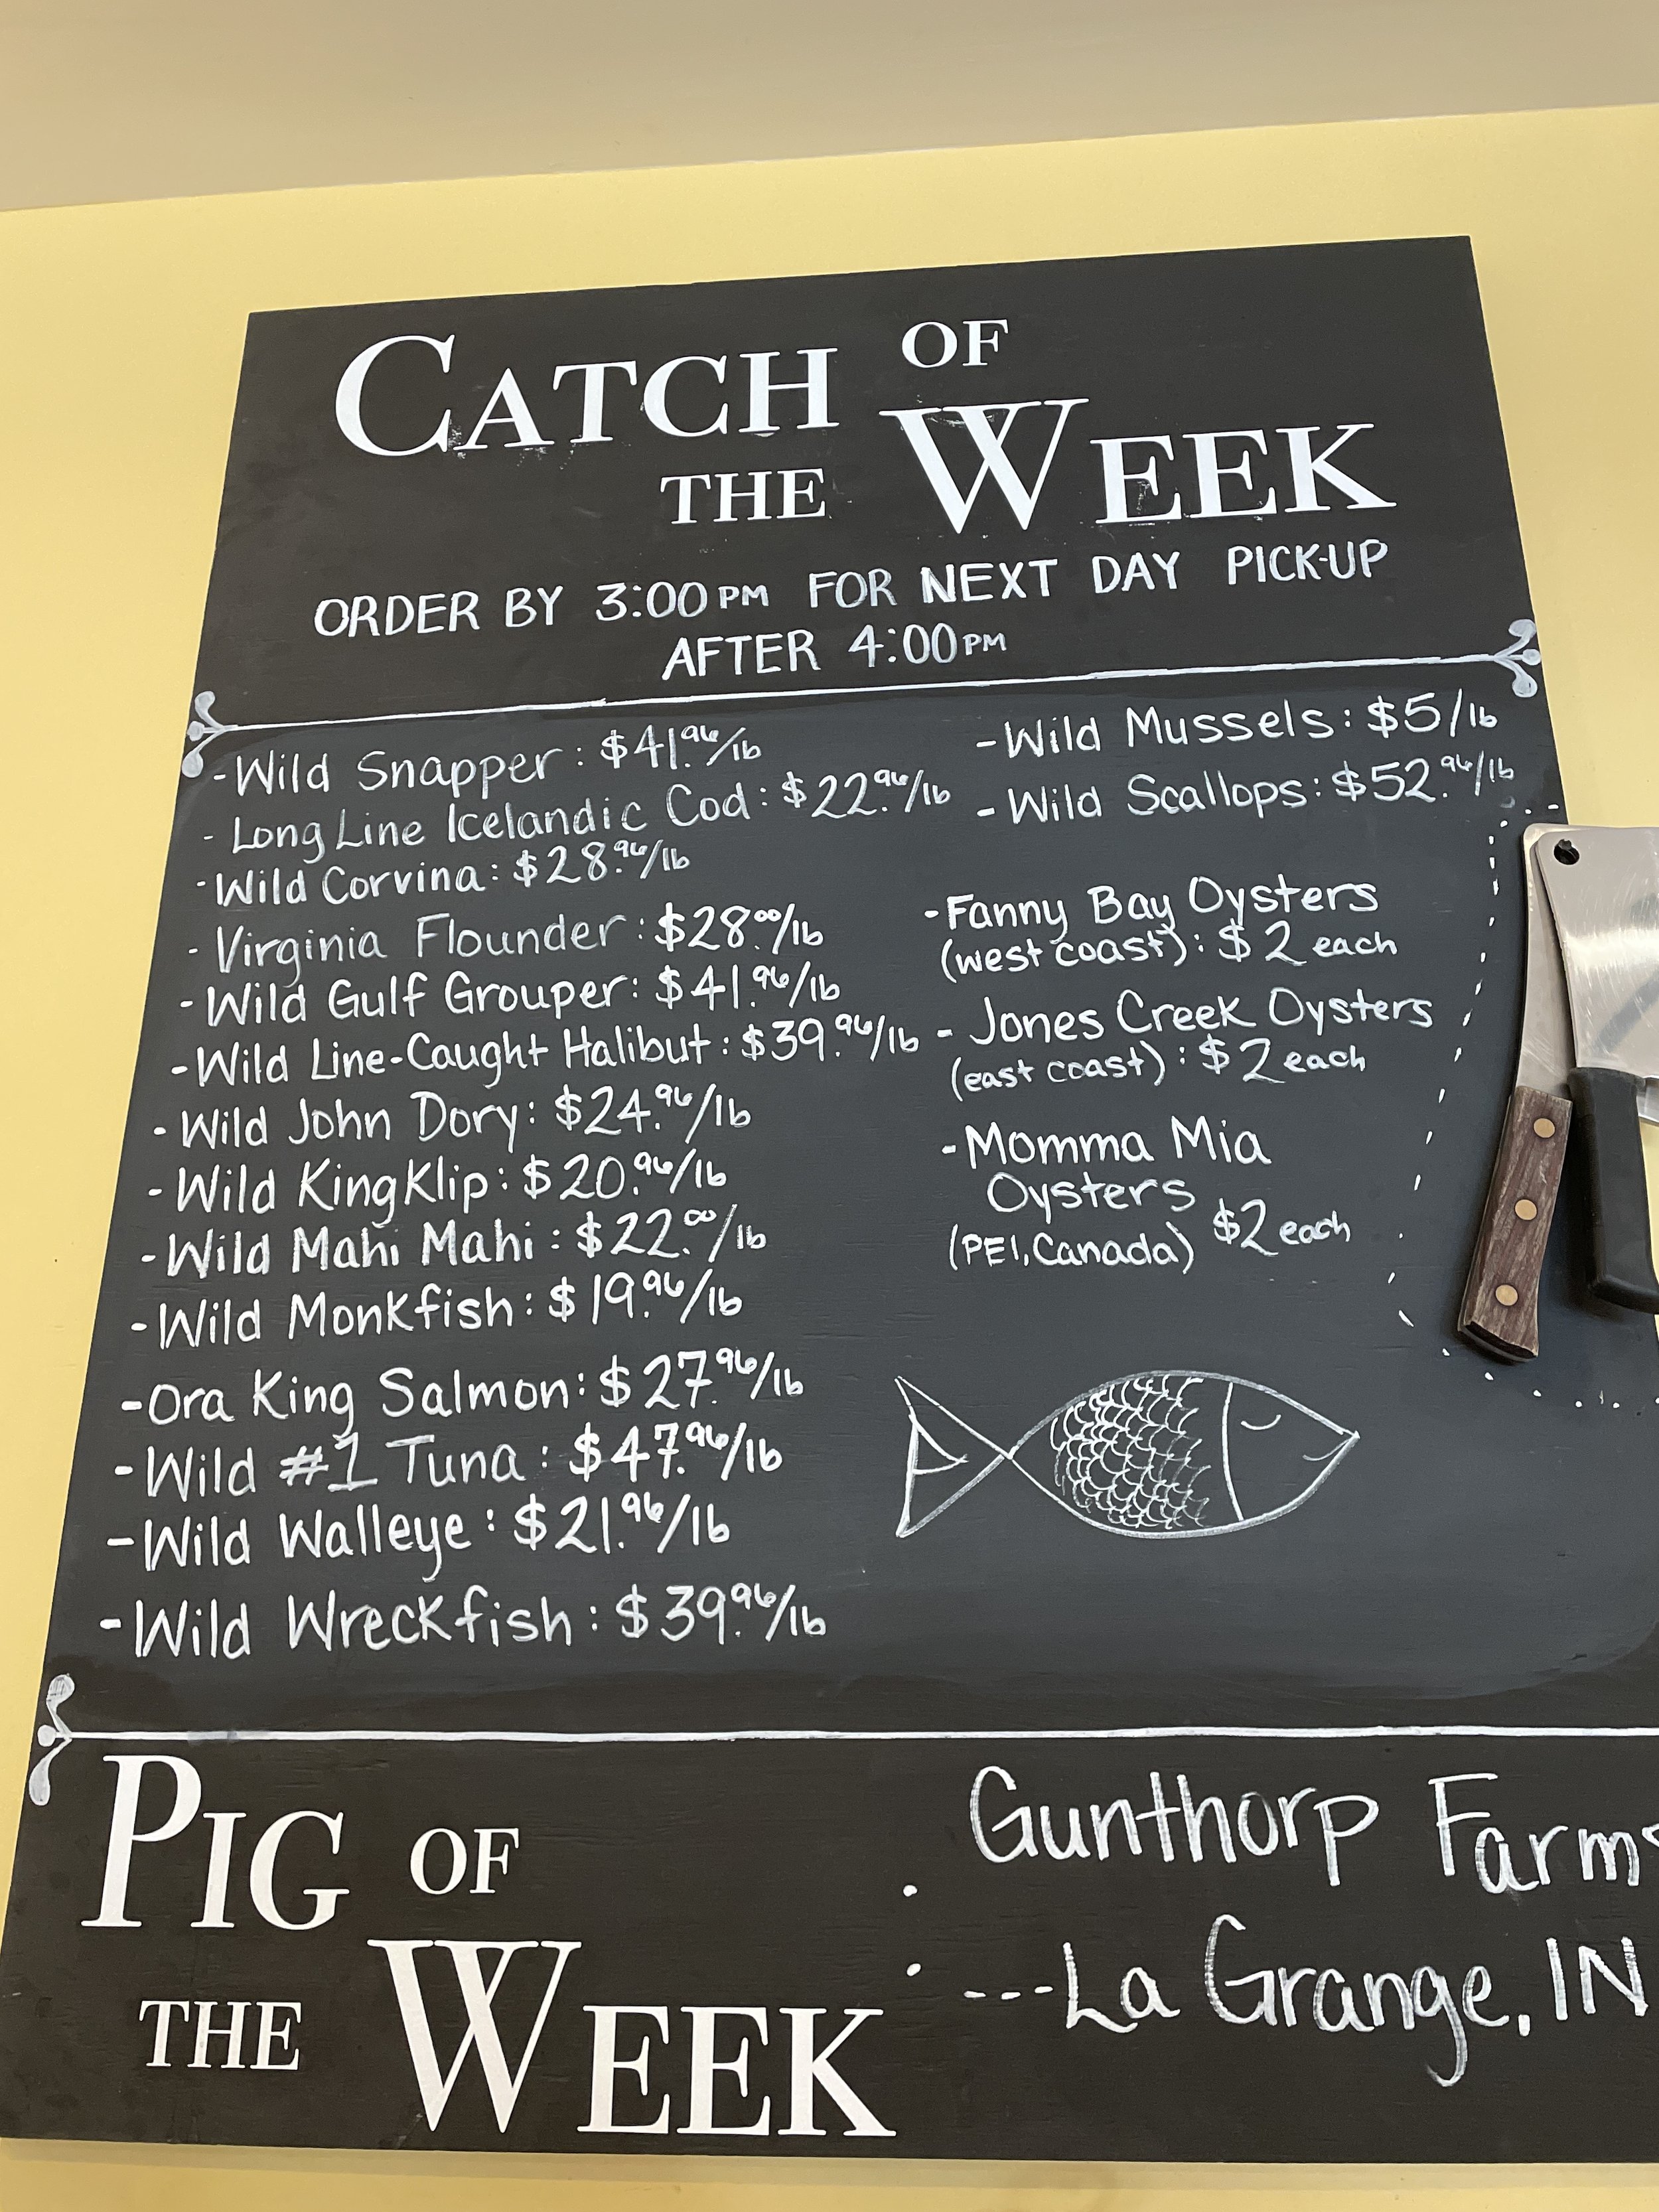 CATCH OF
THE WEEK
ORDER BY 3:00 PM FOR NEXT DAY PICK-UP
AFTER 4:00 PM
-Wild Snapper: $41.96/lb
- Long Line Icelandic Cod: $22.96/lb
-Wild Corvina: $28.96/lb
- Virginia Flounder: $28.00/lb
- Wild Gulf Grouper: $41.96/lb
-Wild Line-Caught Halibut: $39.96/lb
- Wild John Dory: $24.96/lb
- Wild KingKlip: $20.96/lb
-Wild Mahi Mahi: $22.00/lb
-Wild Monkfish: $19.96/lb
-Ora King Salmon: $27.96/lb
-Wild #1 Tuna: $47.96/lb
-Wild Walleye: $21.96/lb
-Wild Wreckfish: $39.96/lb
-Wild Mussels: $5/lb
- Wild Scallops: $52.96/lb
-Fanny Bay Oysters
(west coast): $2 each
- Jones Creek Oysters
(east coast): $2 each
-Momma Mia
Oysters
(PEI, Canada) $2 each
PIG OF
THE WEEK
: Gunthorp Farms
---La Grange, IN